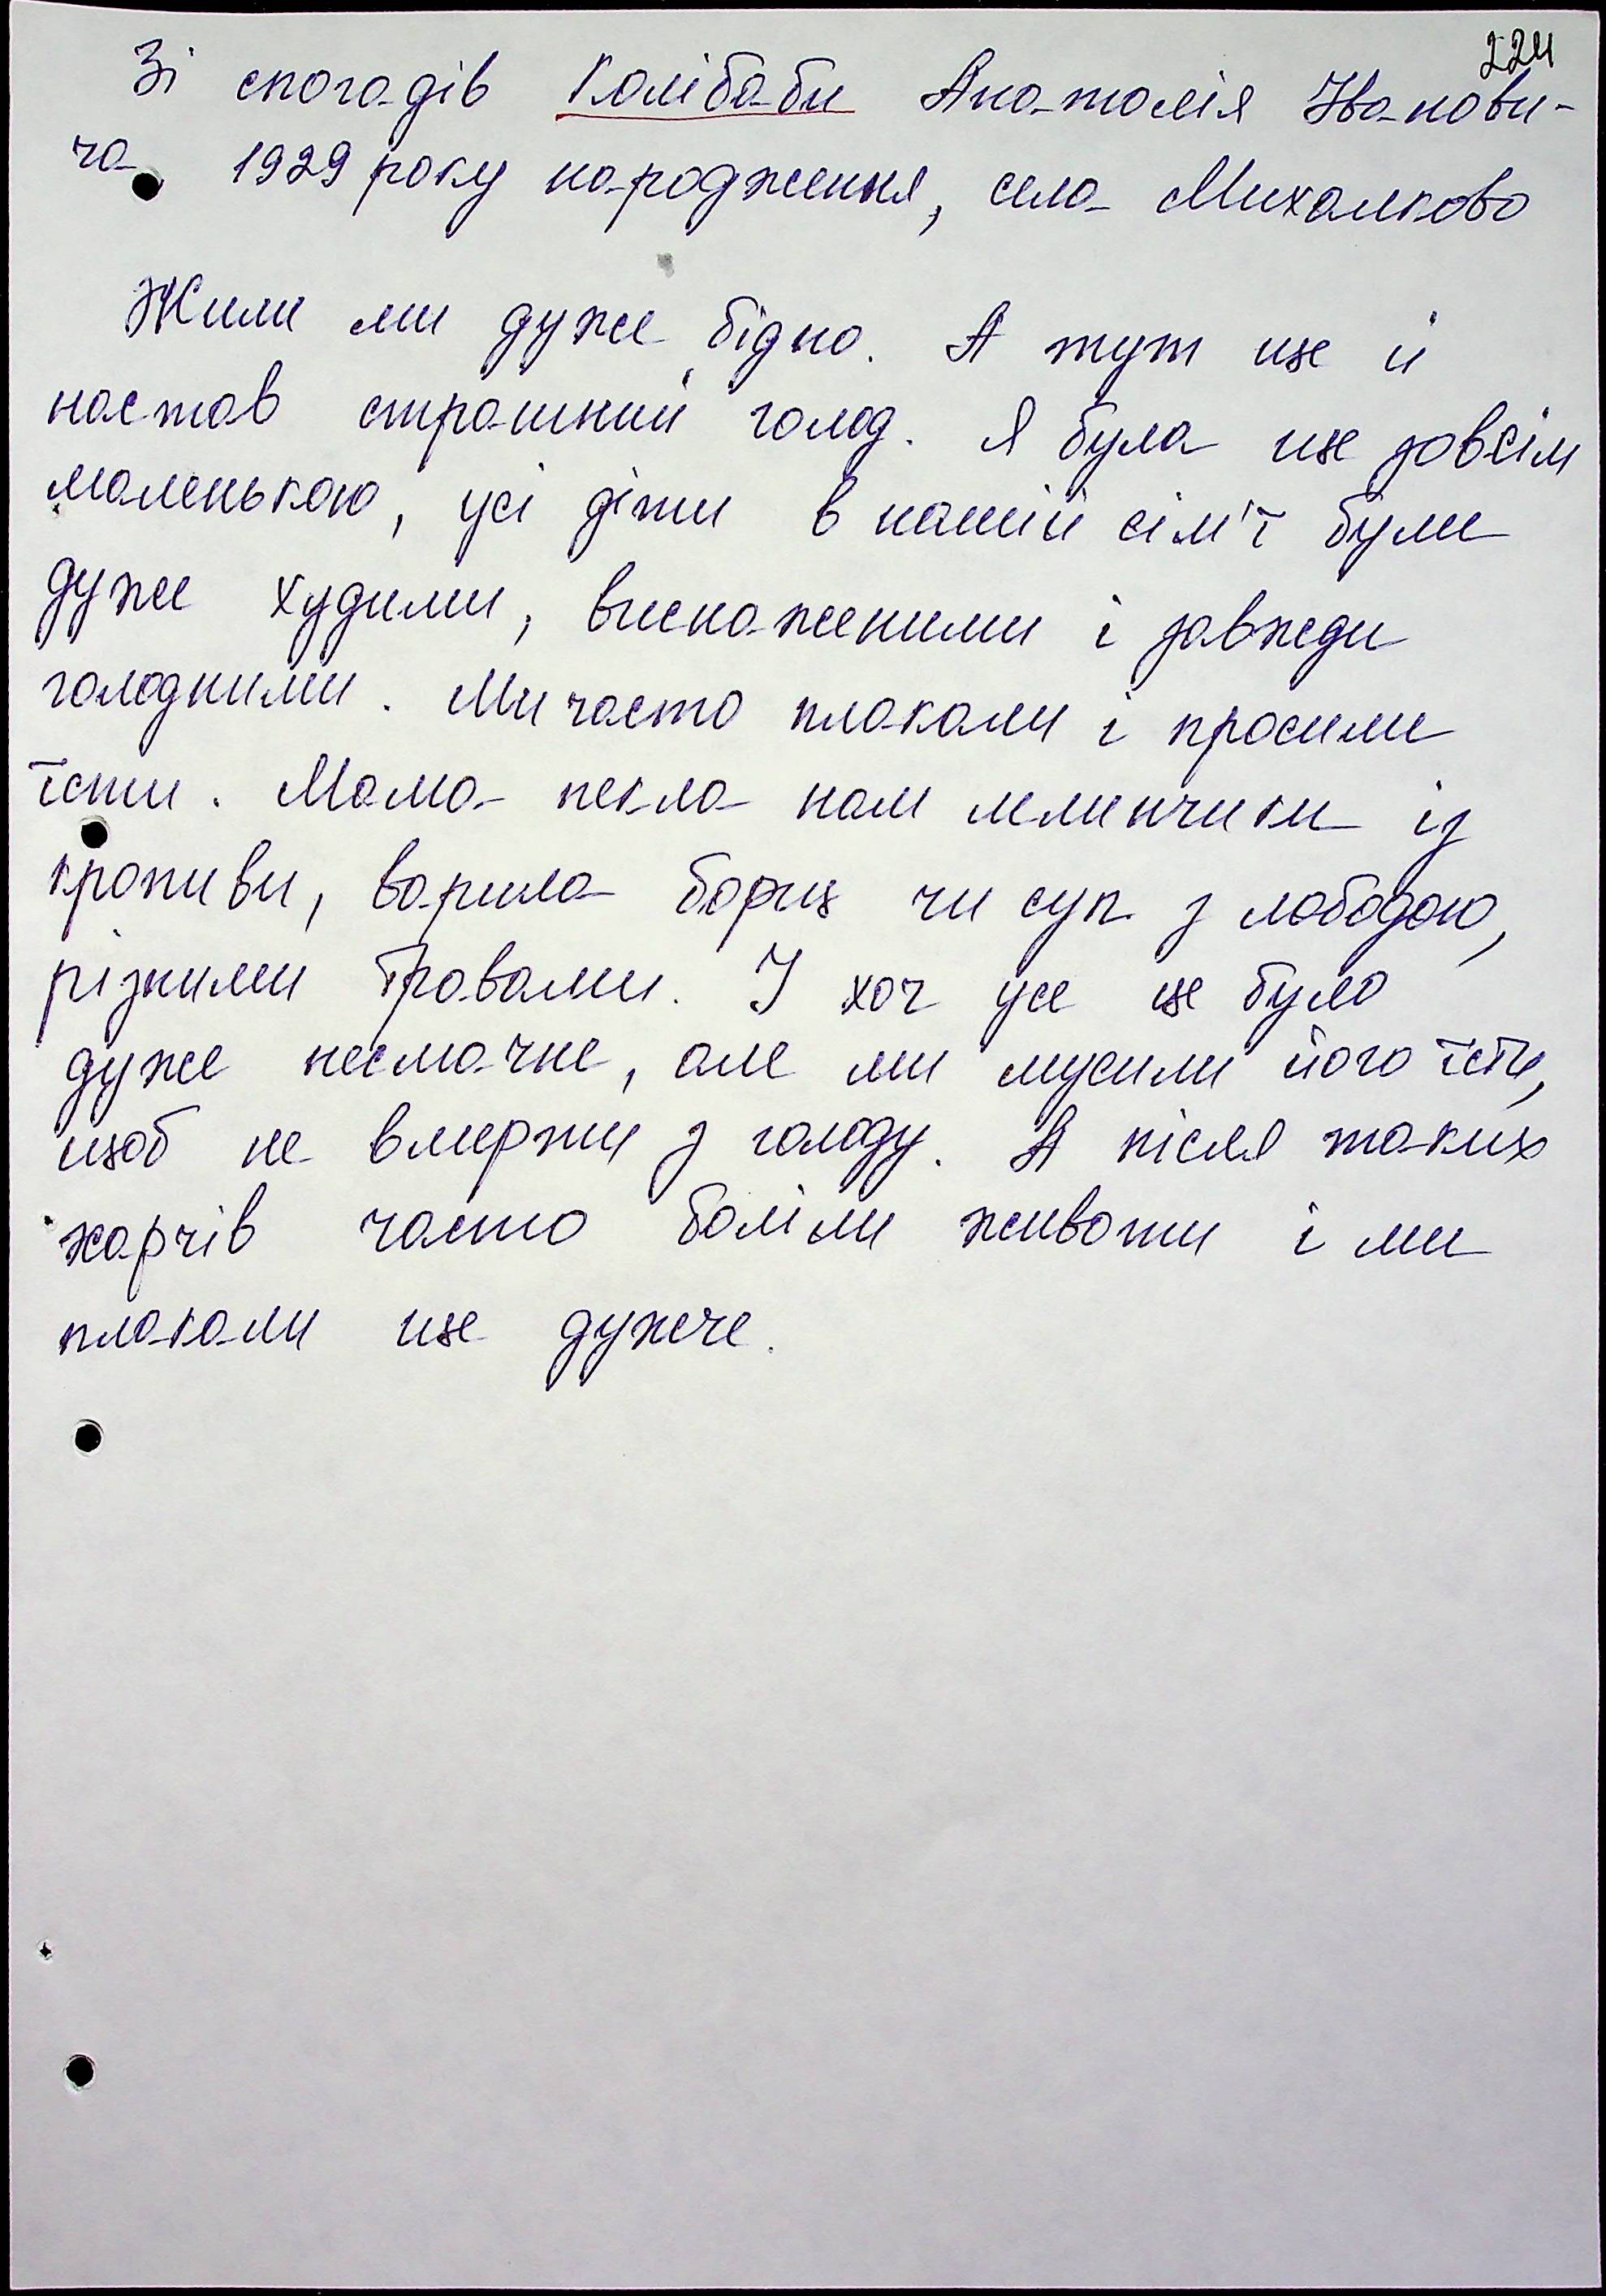 224
Зі спогадів Калібаби Анатолія Іванови-
ча, 1929 року народження, села Михалково
Жили ми дуже бідно. А тут ще й
настав страшний голод. Я була ще зовсім
маленькою, усі діти в нашій сім'ї були
дуже худими, виснаженими і завжди
голодними. Ми часто плакали і просили
їсти. Мама пекла нам млинчики із
кропиви, варила борщ чи суп з лободою,
різними травами. І хоч усе це було
дуже несмачне, але ми мусили його їсти,
щоб не вмерти з голоду. А після таких
харчів часто боліли животи і ми
плакали ще дужче.